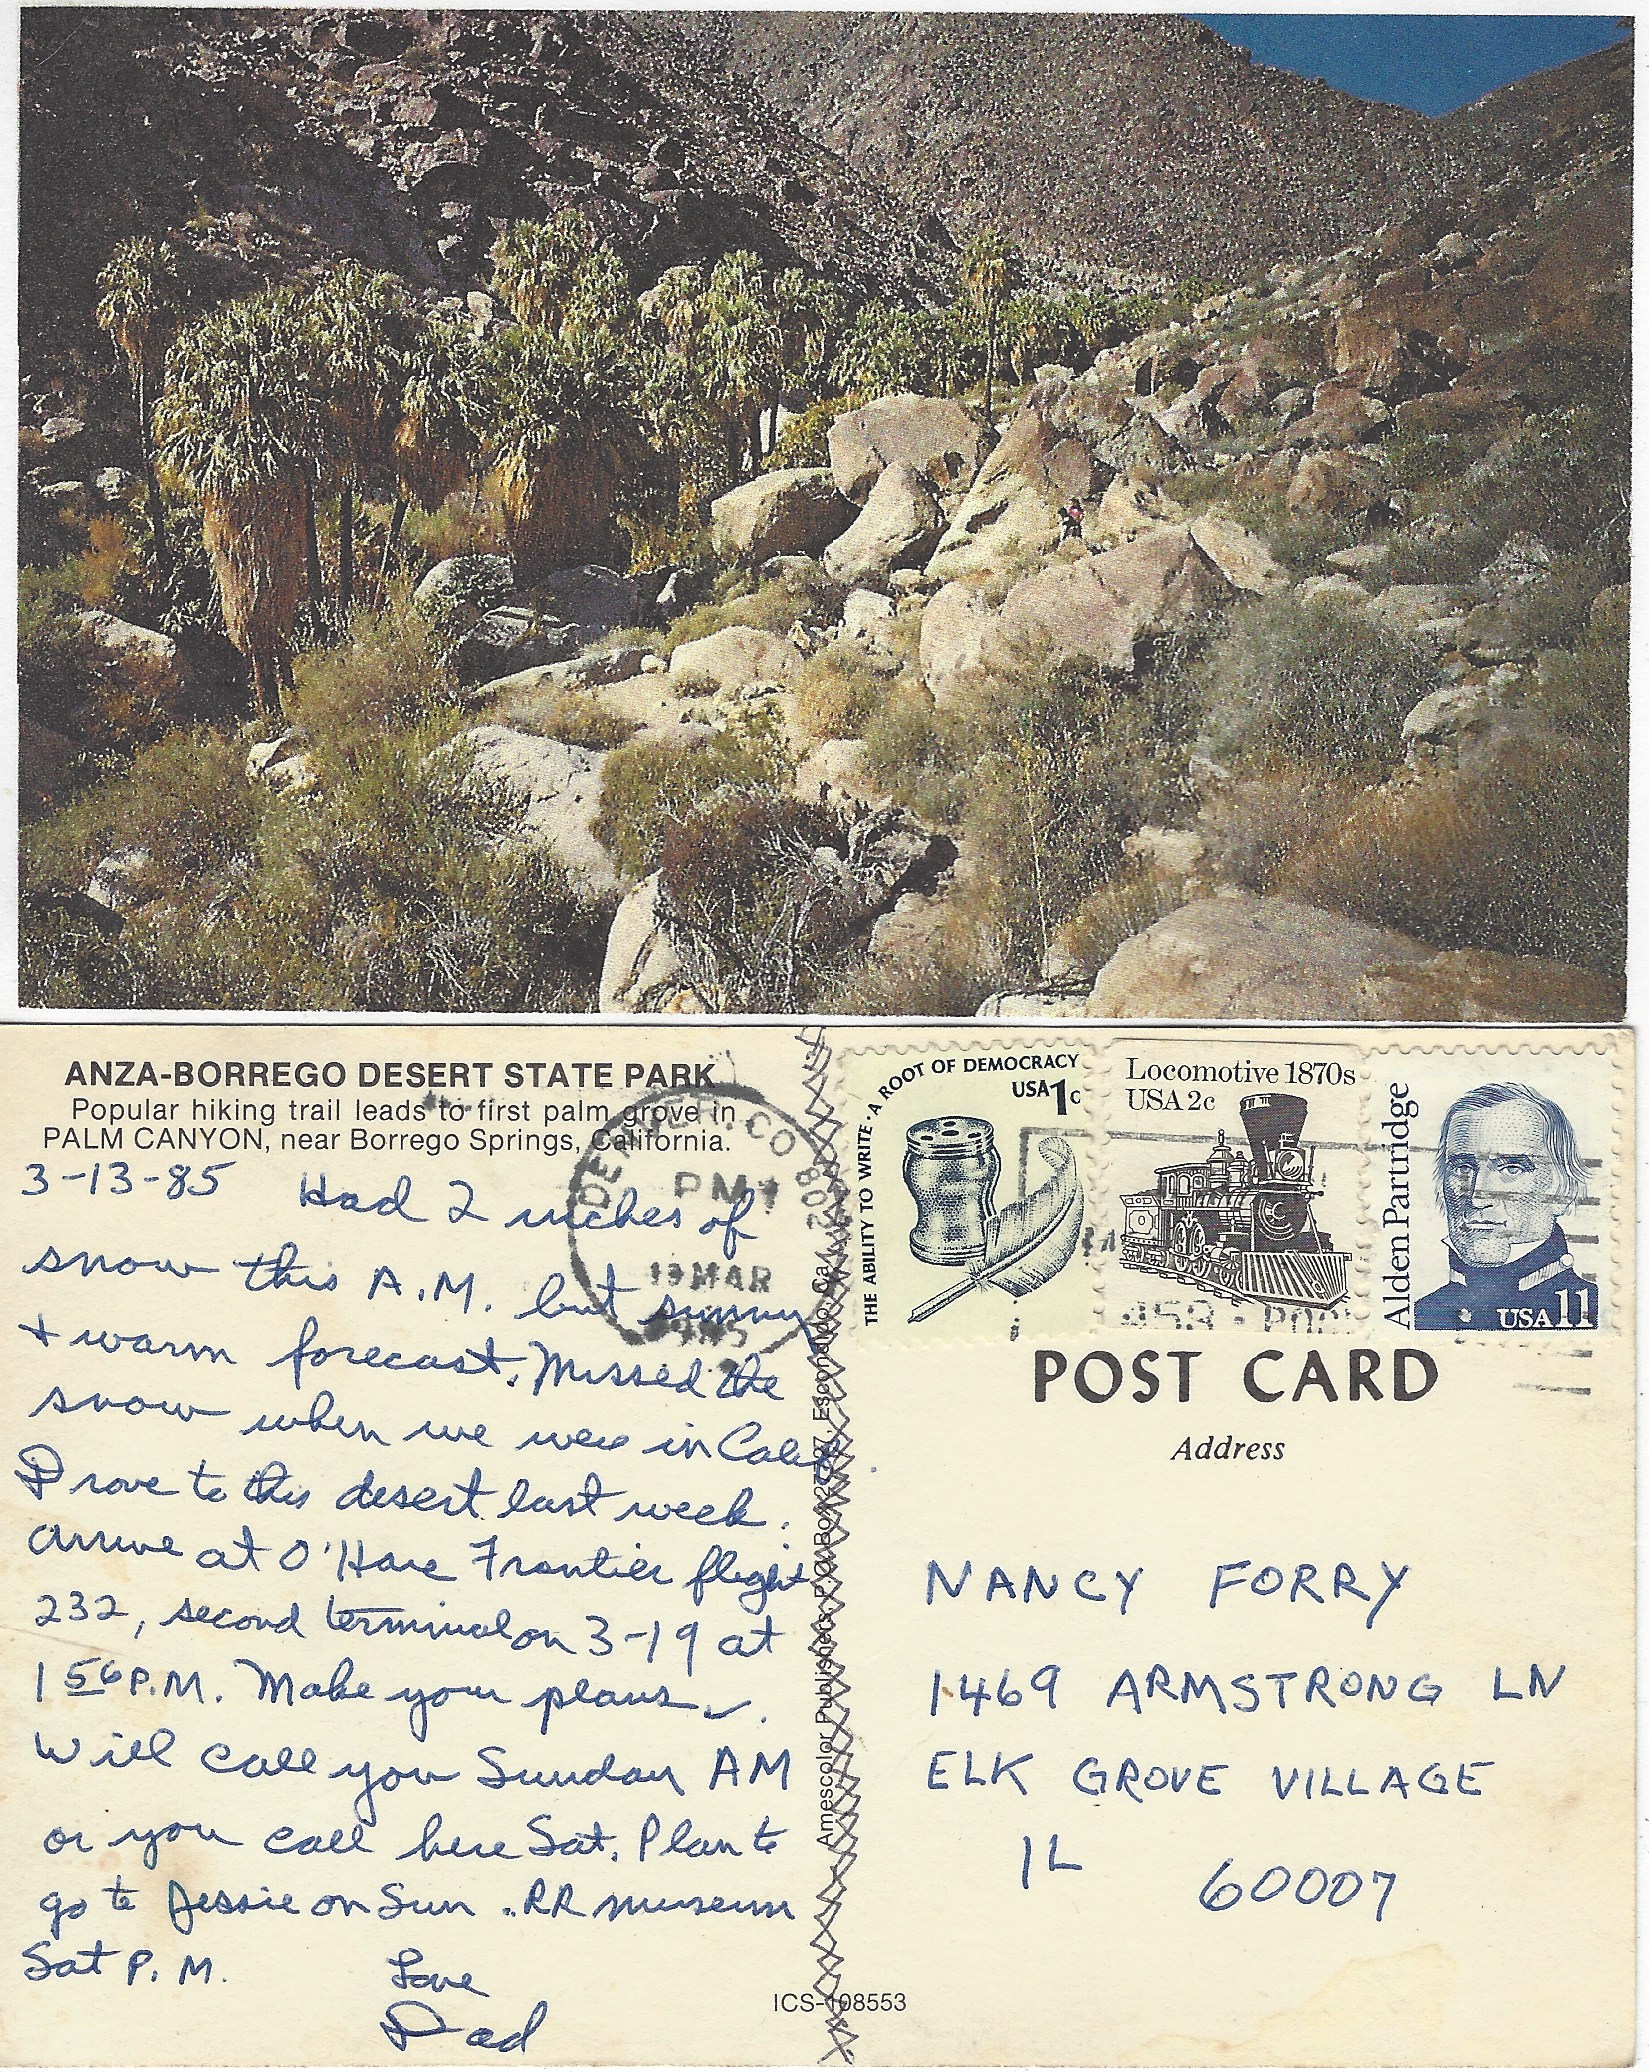 ANZA-BORREGO DESERT STATE PARK
Popular hiking trail leads to first palm grove in
PALM CANYON, near Borrego Springs, California.
3-13-85 Had 2 inches of
snow this A.M. but sunny
+ warm forecast. Missed the
snow when we were in Calif
Drove to this desert last week.
arrive at O'Hare Frontier flight
232, second terminal on 3-19 at
1 56 P.M. Make your plans ✓.
Will call you Sunday AM
or you call here Sat. Plan to
go to Jessie on Sun. RR museum
Sat P.M.
Love
Dad
DENVER, CO 802
PM
13 MAR
1985
Amescolor Publishers, P.O. Box Escondido, Ca.
ICS-108553
THE ABILITY TO WRITE · A ROOT OF DEMOCRACY
USA 1c
Locomotive 1870s
USA 2c
Alden Partridge
USA 11
POST CARD
Address
NANCY FORRY
1469 ARMSTRONG LN
ELK GROVE VILLAGE
IL 60007